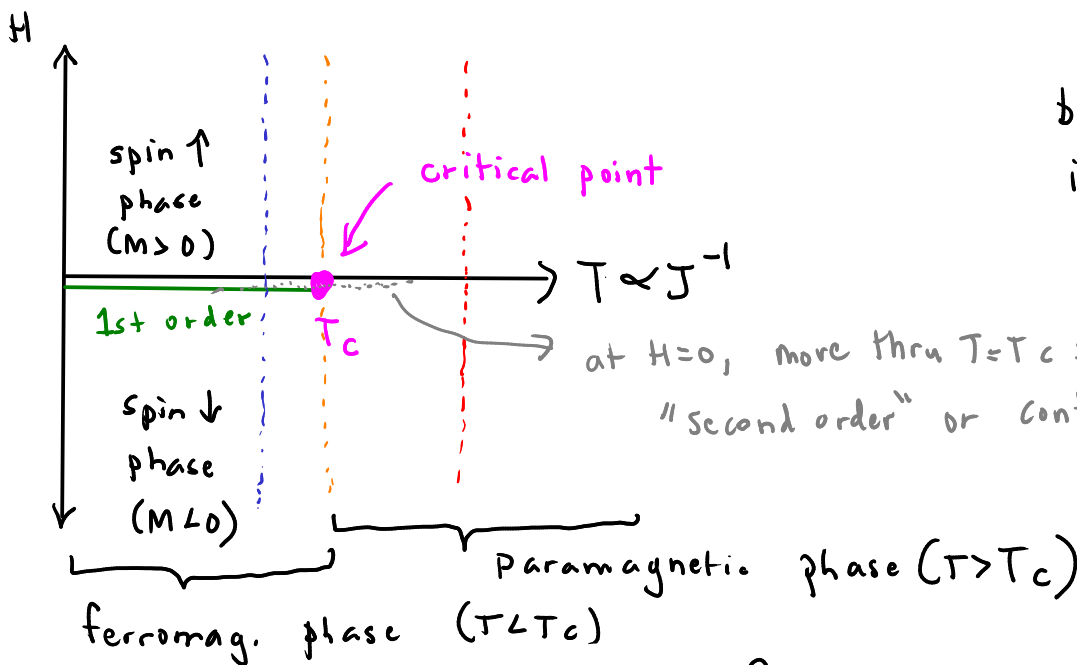 H
b
i
spin ↑
phase
(M > 0)
critical point
T ∝ J⁻¹
1st order
Tc
at H=0, more thru T=Tc :
"second order" or cont
spin ↓
phase
(M < 0)
paramagnetic phase (T > Tc)
ferromag. phase (T < Tc)